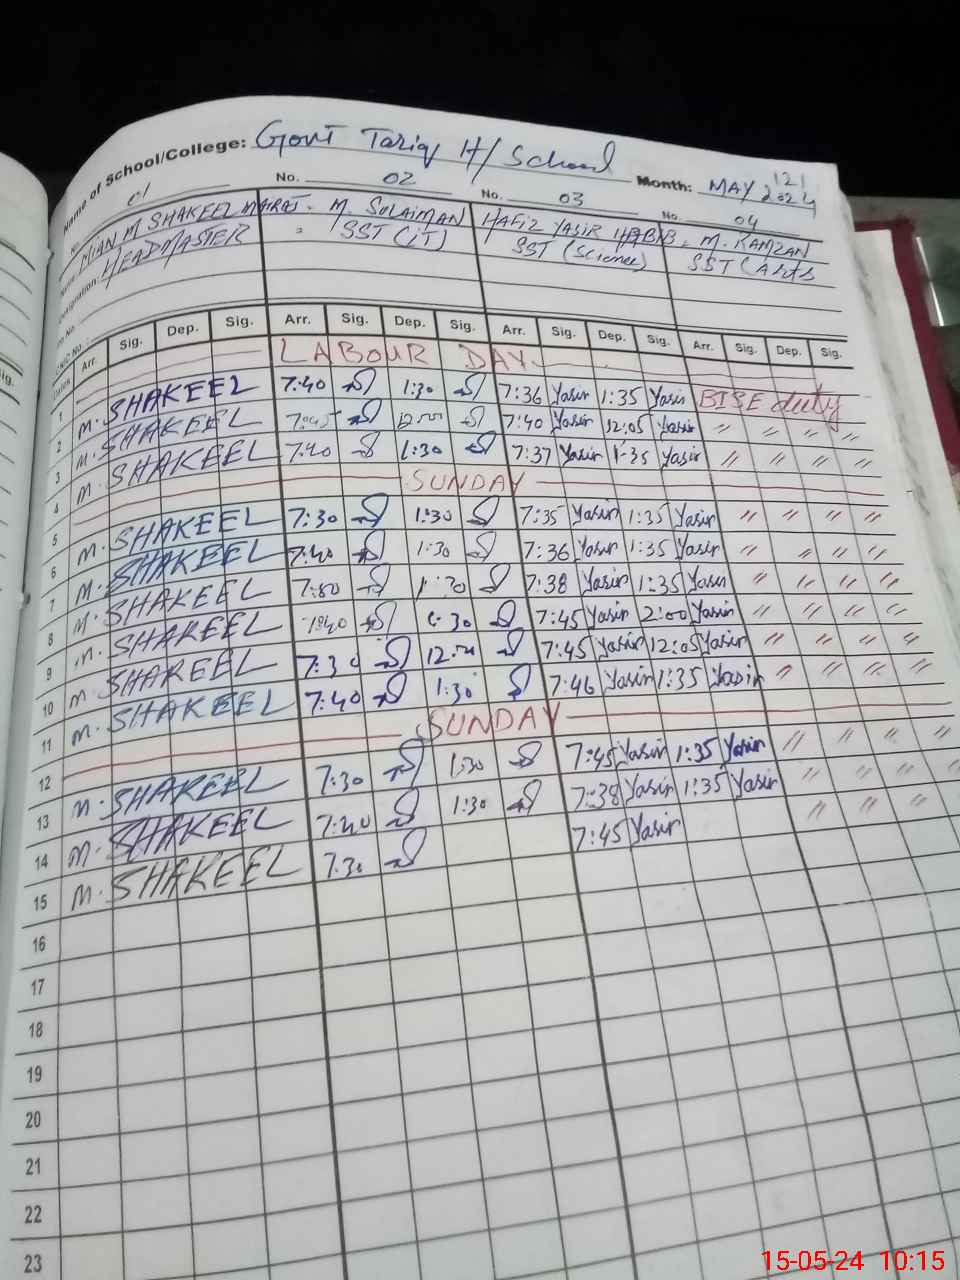 Name of School/College: Govt Tariq H/School Month: MAY 2024
121
No. 01 No. 02 No. 03 No. 04
MIAN M SHAKEEL M. SULAIMAN HAFIZ YASIR HABIB M. RAMZAN
Designation: HEADMASTER SST (IT) SST (Science) SST (Arts
CNIC No.:
Dates Arr. Sig. Dep. Sig. Arr. Sig. Dep. Sig. Arr. Sig. Dep. Sig. Arr. Sig. Dep. Sig.
1 LABOUR DAY
2 M. SHAKEEL 7:40 1:30 7:36 Yasir 1:35 Yasir BISE duty
3 M. SHAKEEL 7:40 Yasir 12:05 Yasir " " " "
4 M. SHAKEEL 7:40 1:30 7:37 Yasir 1:35 Yasir " " " "
5 SUNDAY
6 M. SHAKEEL 7:30 1:30 7:35 Yasir 1:35 Yasir " " " "
7 M. SHAKEEL 7:40 1:30 7:36 Yasir 1:35 Yasir " " " "
8 M. SHAKEEL 7:38 Yasir 1:35 Yasir " " " "
9 M. SHAKEEL 7:40 1:30 7:45 Yasir 2:00 Yasir " " " "
10 M. SHAKEEL 7:30 7:45 Yasir 12:05 Yasir " " " "
11 M. SHAKEEL 7:40 1:30 7:46 Yasir 1:35 Yasir " " " "
12 SUNDAY
13 M. SHAKEEL 7:30 1:30 7:45 Yasir 1:35 Yasir " " " "
14 M. SHAKEEL 7:40 1:30 7:38 Yasir 1:35 Yasir " " " "
15 M. SHAKEEL 7:30 7:45 Yasir " " " "
16
17
18
19
20
21
22
23
15-05-24 10:15